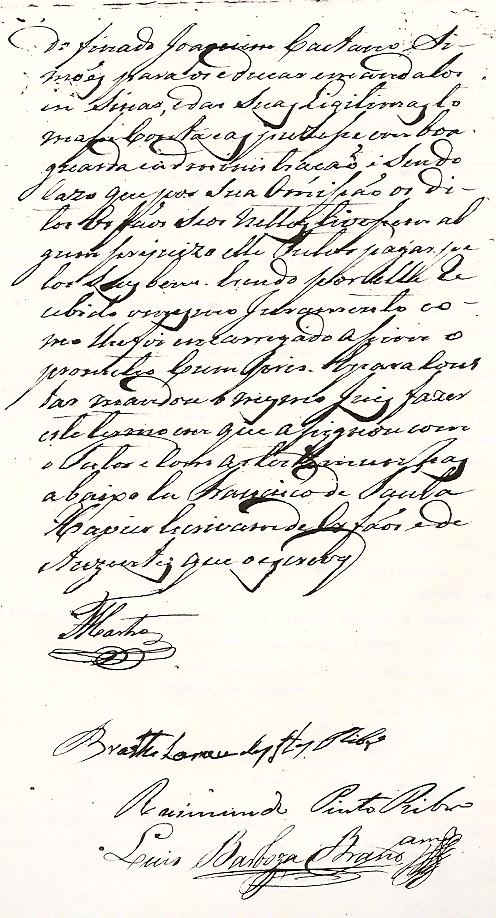 do finado Joaquim Caetano Si-
mões para os educar emandalos
in sinar, e das suas Legitimas to
mara Conta eas puzese com boa
guarda e administração e sendo
cazo que por sua omição os di-
tos Orfãos seos Nettos tivesem al
gum prejuizo elle Tutor pagar pe
los seus bens. Sendo por elle Re
cebido o mesmo Juramento co-
mo lhe foi encarregado asim o
prometeo Cumprir. E para Cons
tar mandou o mesmo Juiz fazer
este termo em que asignou com
o Tutor e com as testemunhas
abaixo Eu Francisco de Paula
Escrivam de Orfãos e de
Auzentes que o escrevy
Bartholomeu Ribr.º
Raimundo Pinto Ribro
Luis Barboza